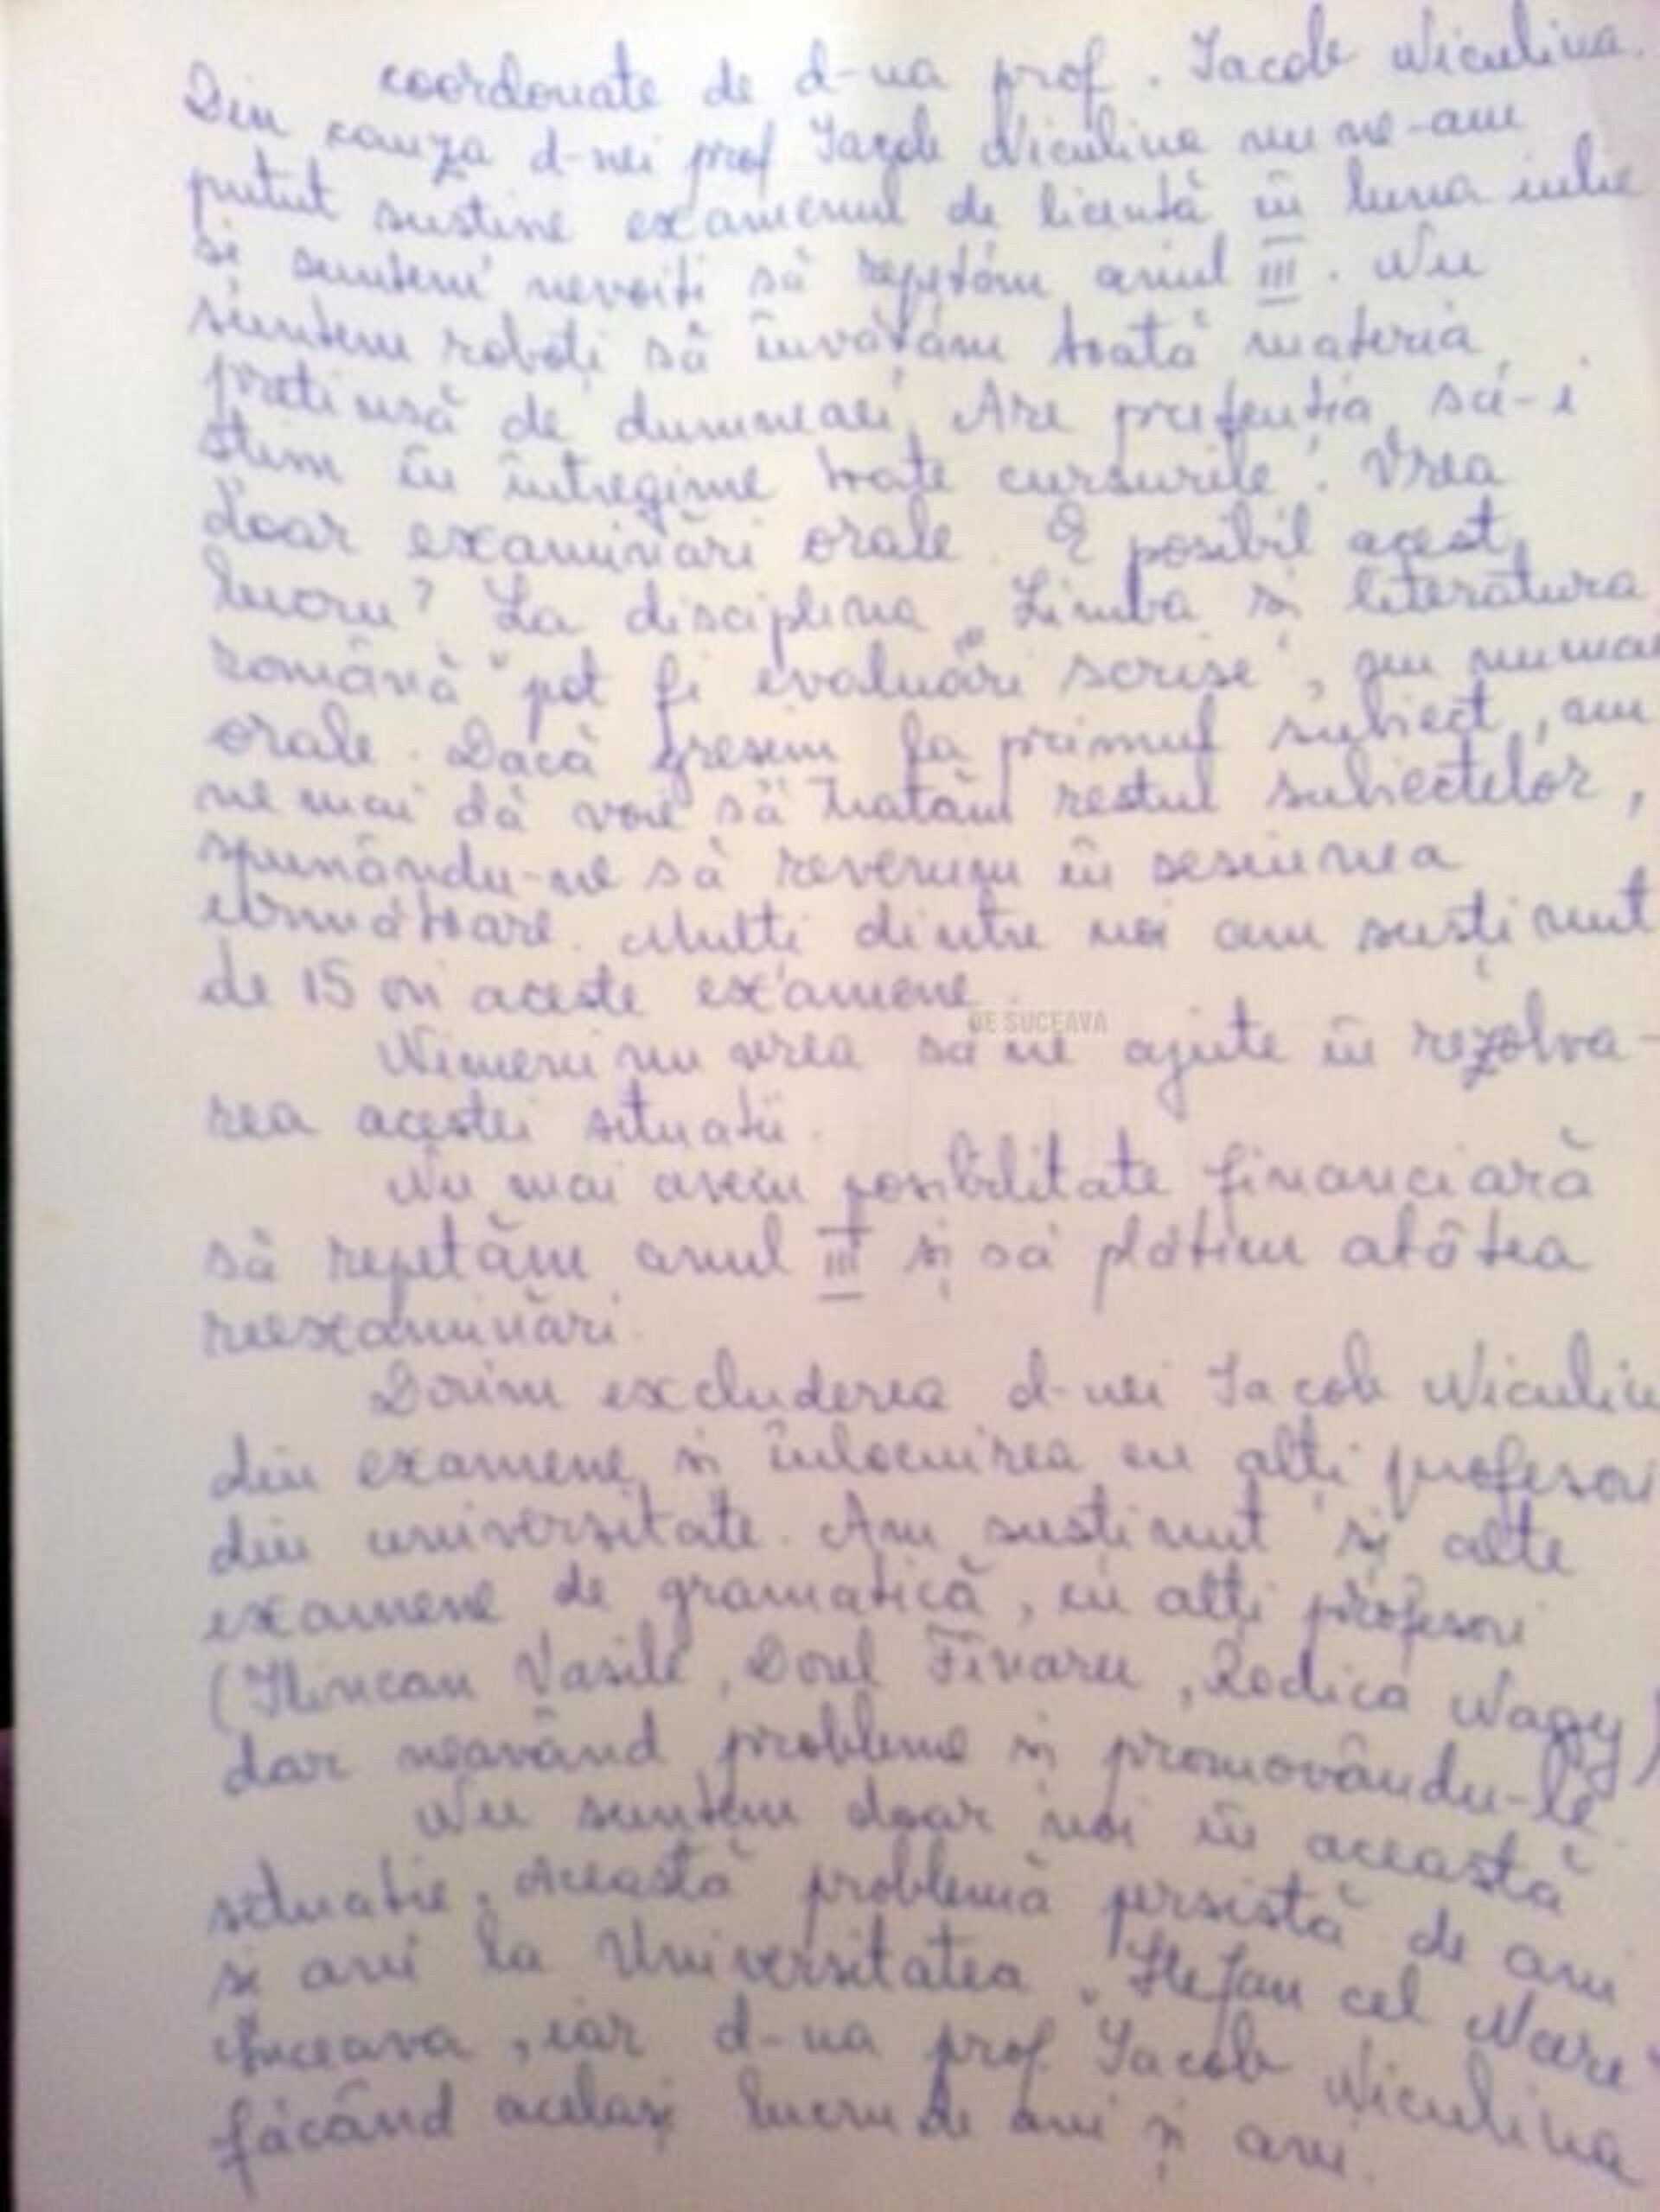 coordonate de d-na prof. Iacob Niculina.
Din cauza d-nei prof Iacob Niculina nu ne-am
putut sustine examenul de licentă în luna iulie
si suntem nevoiti să repetăm anul III. Nu
suntem roboți să învătăm toată materia
pretinsă de dumneaei. Are pretentia să-i
stim în întregime toate cursurile. Vrea
doar examinări orale. E posibil acest
lucru? La disciplina „Limba si literatura
română" pot fi evaluări scrise, nu numai
orale. Dacă gresim la primul subiect, nu
ne mai dă voie să tratăm restul subiectelor,
spunându-ne să revenim în sesiunea
următoare. Multi dintre noi am sustinut
de 15 ori aceste examene.
DE SUCEAVA
Nimeni nu vrea să ne ajute în rezolva-
rea acestei situatii.
Nu mai avem posibilitate financiară
să repetăm anul III și să plătim atâtea
reexaminări.
Dorim excluderea d-nei Iacob Niculin
din examene si înlocuirea cu alți profesori
din universitate. Am susținut și alte
examene de gramatică, cu alți profesori
(Ilincan Vasile, Dorel Fînaru, Rodica Nagy)
dar neavând probleme si promovându-le.
Nu suntem doar noi în această
situatie. Această problemă persistă de ani
si ani la Universitatea „Stefan cel Mare"
Suceava, iar d-na prof. Iacob Niculina
făcând acelasi lucru de ani și ani.